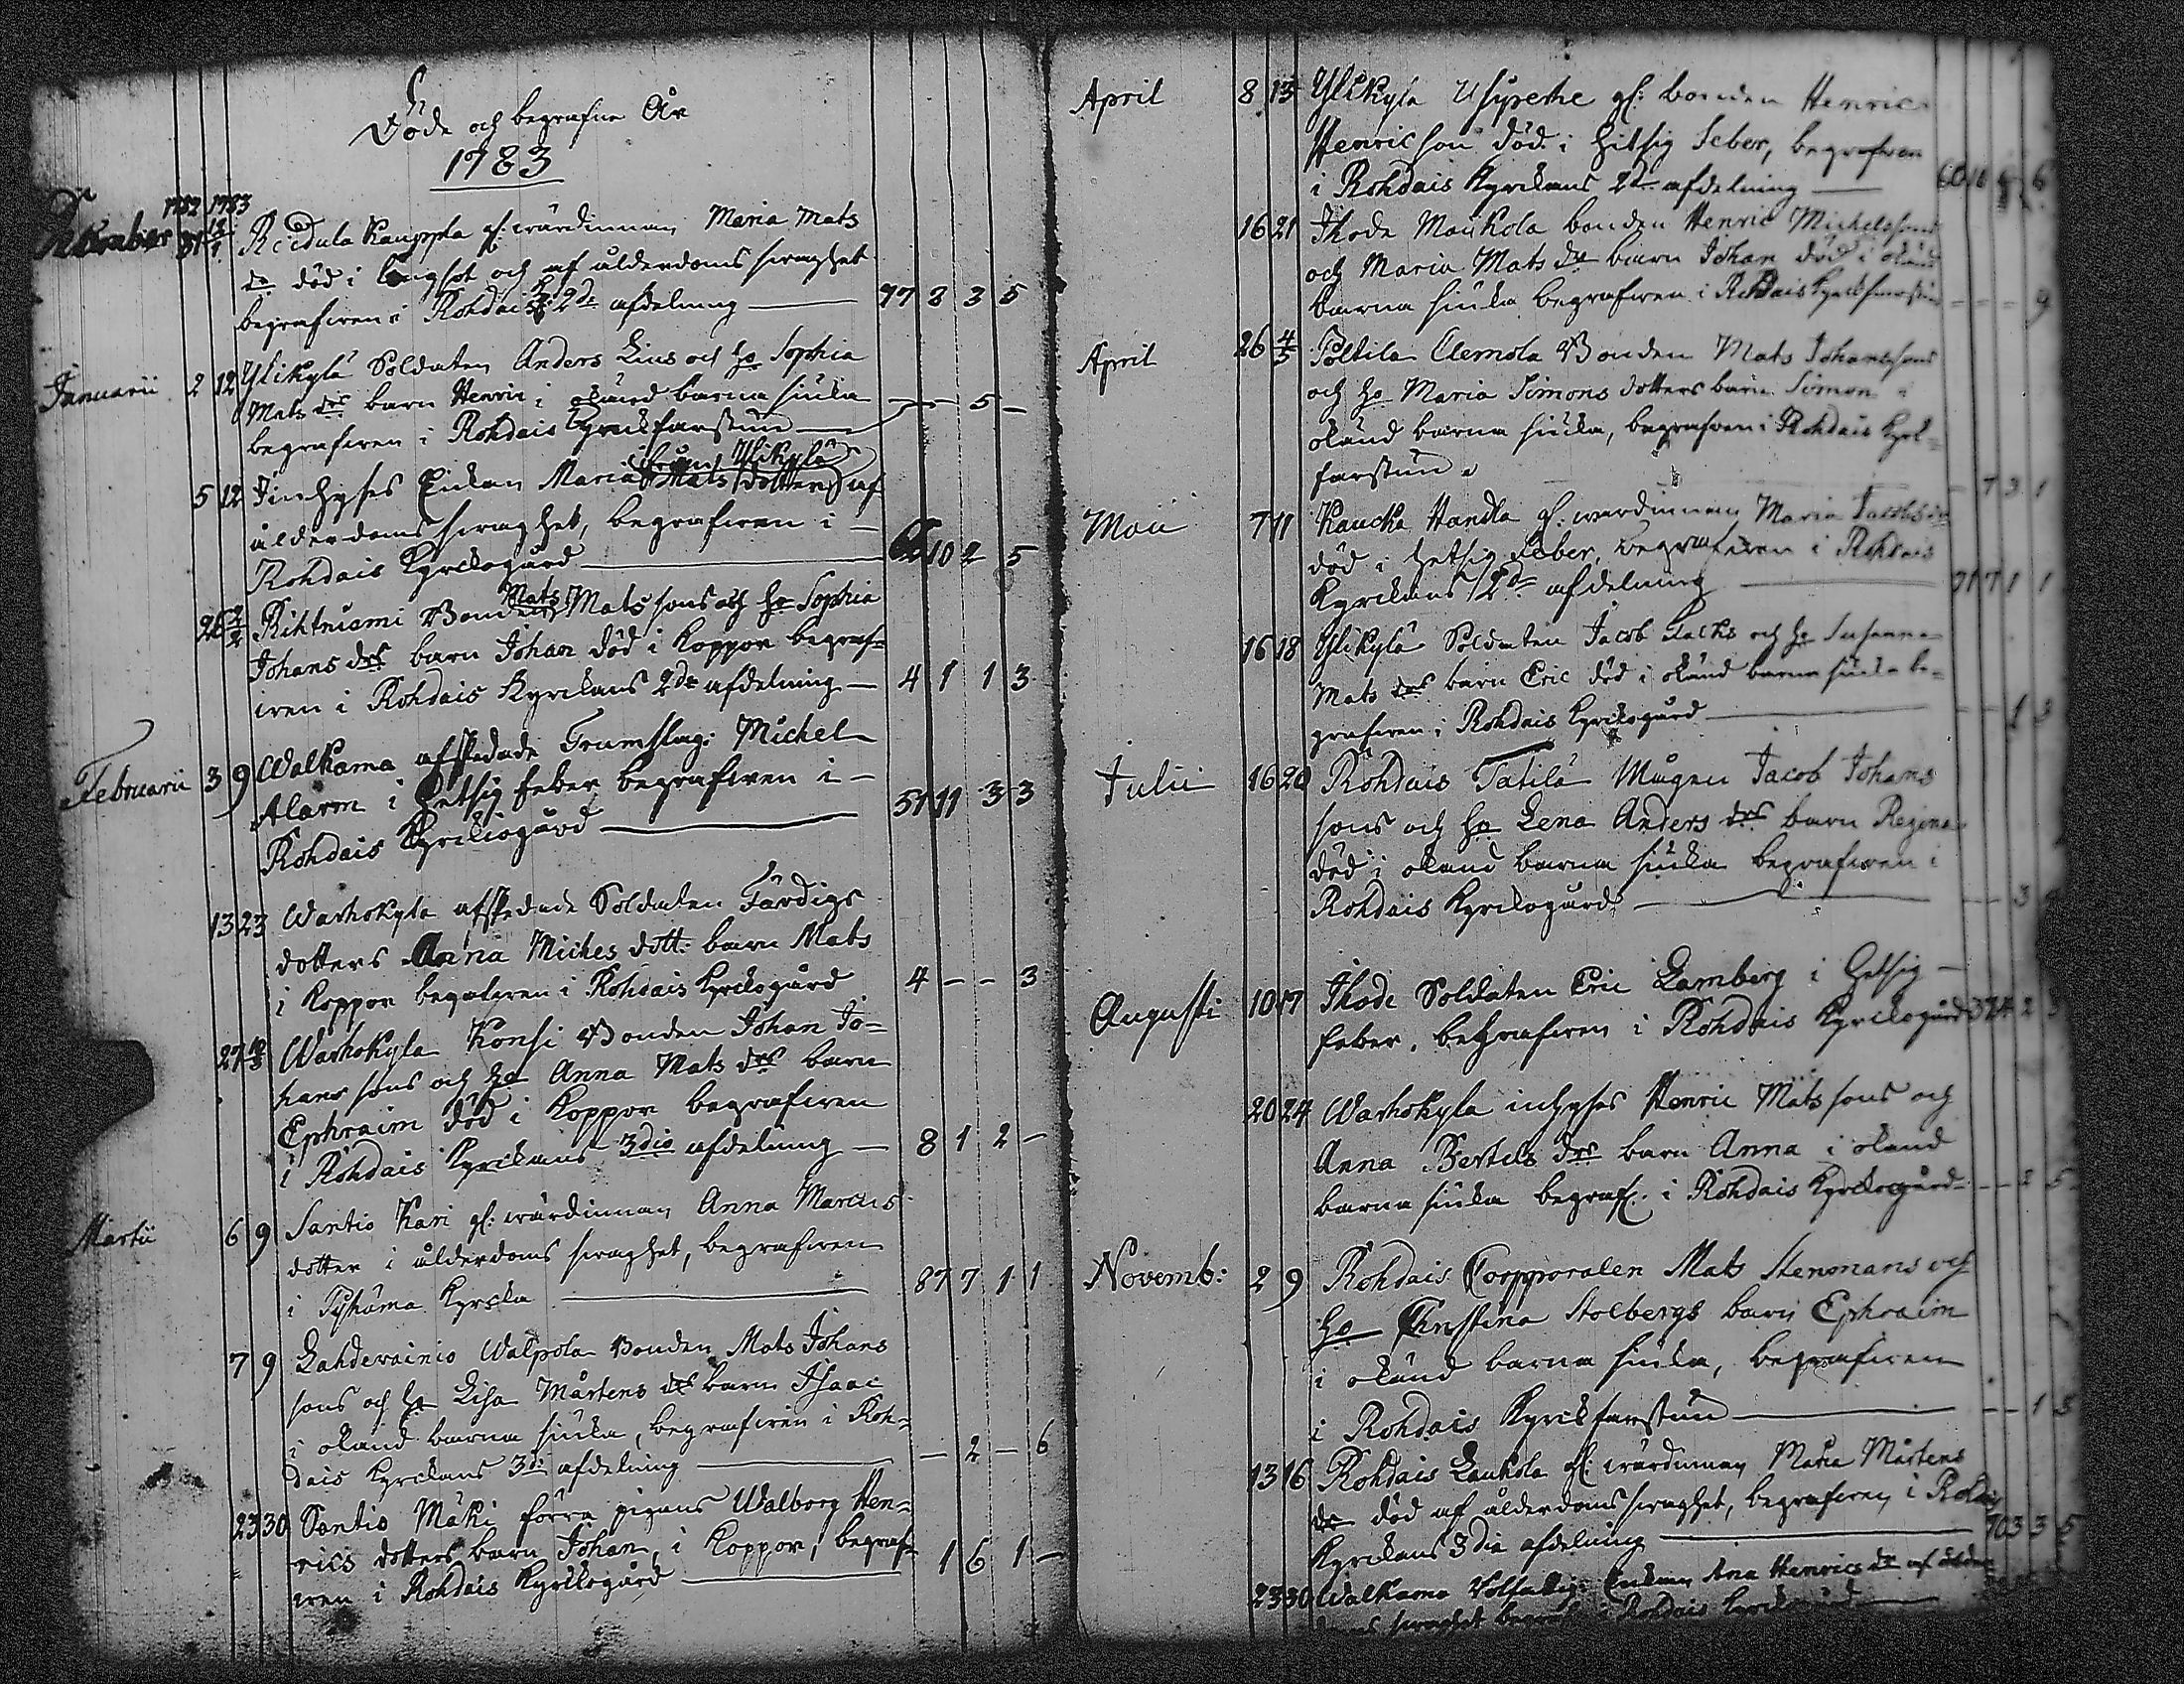 Döde och begrafne År
1783
1782 1783
December 31 12/1 Reidula Kauppla gl: wärdinnan Maria Mats
dr död i långsot och af ålderdoms swaghet
begrafwen i Rohdais K: 2dr afdelning — 77 8 3 5
Januarii 2 12 Ylikylä Soldaten Anders Lius och ho Sophia
Mats drs barn Henric i okänd barna siuka — — 5 —
begrafwen i Rohdais Kyrckfarstun —
från Ylikylä
5 12 Inhyses Enkan Maria Mats dotter af
ålderdoms swaghet, begrafwen i —
Rohdais Kyrckogård — 10 2 5
Mats
26 2/2 Rihtniemi Bondens Mats sons och ho Sophia
Johans drs barn Johan död i Koppor begraf-
wen i Rohdais Kyrckans 2dr afdelning — 4 1 1 3
Februarii 3 9 Walkama afskedade Trumslag: Michel
Alarm i hetsig feber begrafwen i —
Rohdais Kyrckogård — 51 11 3 3
13 23 Warhokyla afskedade Soldaten Färdigs
dotters Anna Miches dott: barn Mats
i Koppor begrafwen i Rohdais Kyrckogård 4 — — 3
27 Warhokyla Konsi Bonden Johan Jo-
hans sons och ho Anna Mats drs barn
Ephraim död i Koppor begrafwen
i Rohdais Kyrckans 3die afdelning — 8 1 2 —
Martii 6 9 Santio Kari gl: wärdinnan Anna Marcus
dotter i ålderdoms swaghet, begrafwen
i Pyhäma Kyrcka — 87 7 1 1
7 9 Lahdewainio Walpola Bonden Mats Johans
sons och ho Lisa Mårtens drs barn Isaac
i okänd barna siuka, begrafwen i Roh-
dais Kyrckans 3di afdelning — — 2 — 6
23 30 Santio Mäki förra pigans Walborg Hen-
rics dotters barn Johan, i Koppor, begraf-
wen i Rohdais Kyrckogård — 1 6 1 —
April 8 13 Ylikyla Usspethe gl: bonden Henric
Henricson död i hitsig feber, begrafwen
i Rohdais Kyrckans 2dr afdelning — 6
16 21 Ihode Maukola bonden Henric Michelssons
och Maria Mats drs barn Johan död i okänd
barna siuka begrafwen i Rohdais Kyrckfarstun — — — 9
April 26 4/5 Poltila Clemola Bonden Mats Johanssons
och ho Maria Simons dotters barn Simon i
okänd barna siuka, begrafwen i Rohdais Kyrk-
farstun — 7 3 1
Maii 7 11 Kaucka Handla gl: wärdinnan Maria Jacobs dr
död i hetsig feber, begrafwen i Rohdais
Kyrckans 2dr afdelning — 71 7 1 1
16 18 Ylikylä Soldaten Jacob Lacks och ho Susanna
Mats drs barn Eric död i okänd barna siuka be-
grafwen i Rohdais Kyrckogård — — 1 3
Julii 16 20 Rohdais Tatila Mågen Jacob Johans
sons och ho Lena Anders drs barn Regina
död i okänd barna siuka begrafwen i
Rohdais Kyrckogård — — 3
Augusti 10 17 Ihode Soldaten Eric Lamberg i hetsig —
feber, begrafwen i Rohdais Kyrckogård 37 4 2 3
20 24 Warhokyla inhyses Henric Mats sons och
Anna Bertels drs barn Anna i okänd
barna siuka begraf: i Rohdais Kyrckogård — — 2 5
Novemb: 2 9 Rohdais Corpporalen Mats Stenmans och
ho Christina Stolbergs barn Ephraim
i okänd barna siuka, begrafwen
i Rohdais Kyrckfarstun — — 1 5
13 16 Rohdais Laukola gl: wärdinnan Maria Mårtens
dr död af ålderdoms swaghet, begrafwen i Rohdais
Kyrckans 3die afdelning — 70 3 3 5
23 30 Walkama Enkan Ana Henrics dr af ålder-
doms swaghet begraf: i Rohdais Kyrckogård —